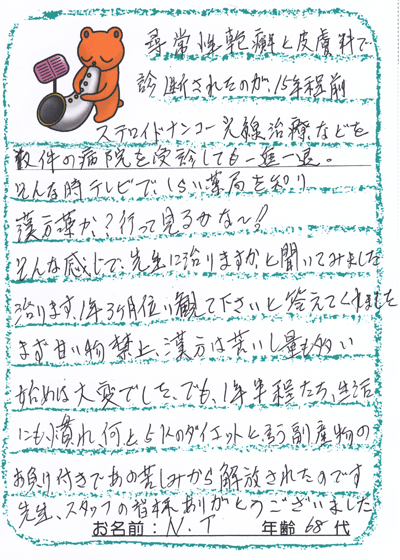 尋常性乾癬と皮膚科で
診断されたのが、15年程前
ステロイドナンコー光線治療などを
件の病院を受診しても一進一退。
そんな時テレビで、しい薬局を知り
漢方薬か、?行って見るかな~!
そんな感じで、先生に治りますか、と聞いてみました
治ります、1年3ヶ月位い観て下さいと答えてくれました
まず甘い物禁止、漢方は苦いし量も多い
始めは大変でした、でも、1年半程たち、生活
にも、慣れ、何と5kのダイエットと言う副産物の
お負け付きであの苦しみから解放されたのです
先生、スタッフの皆様ありがとうございました
お名前:N.T 年齢 68 代